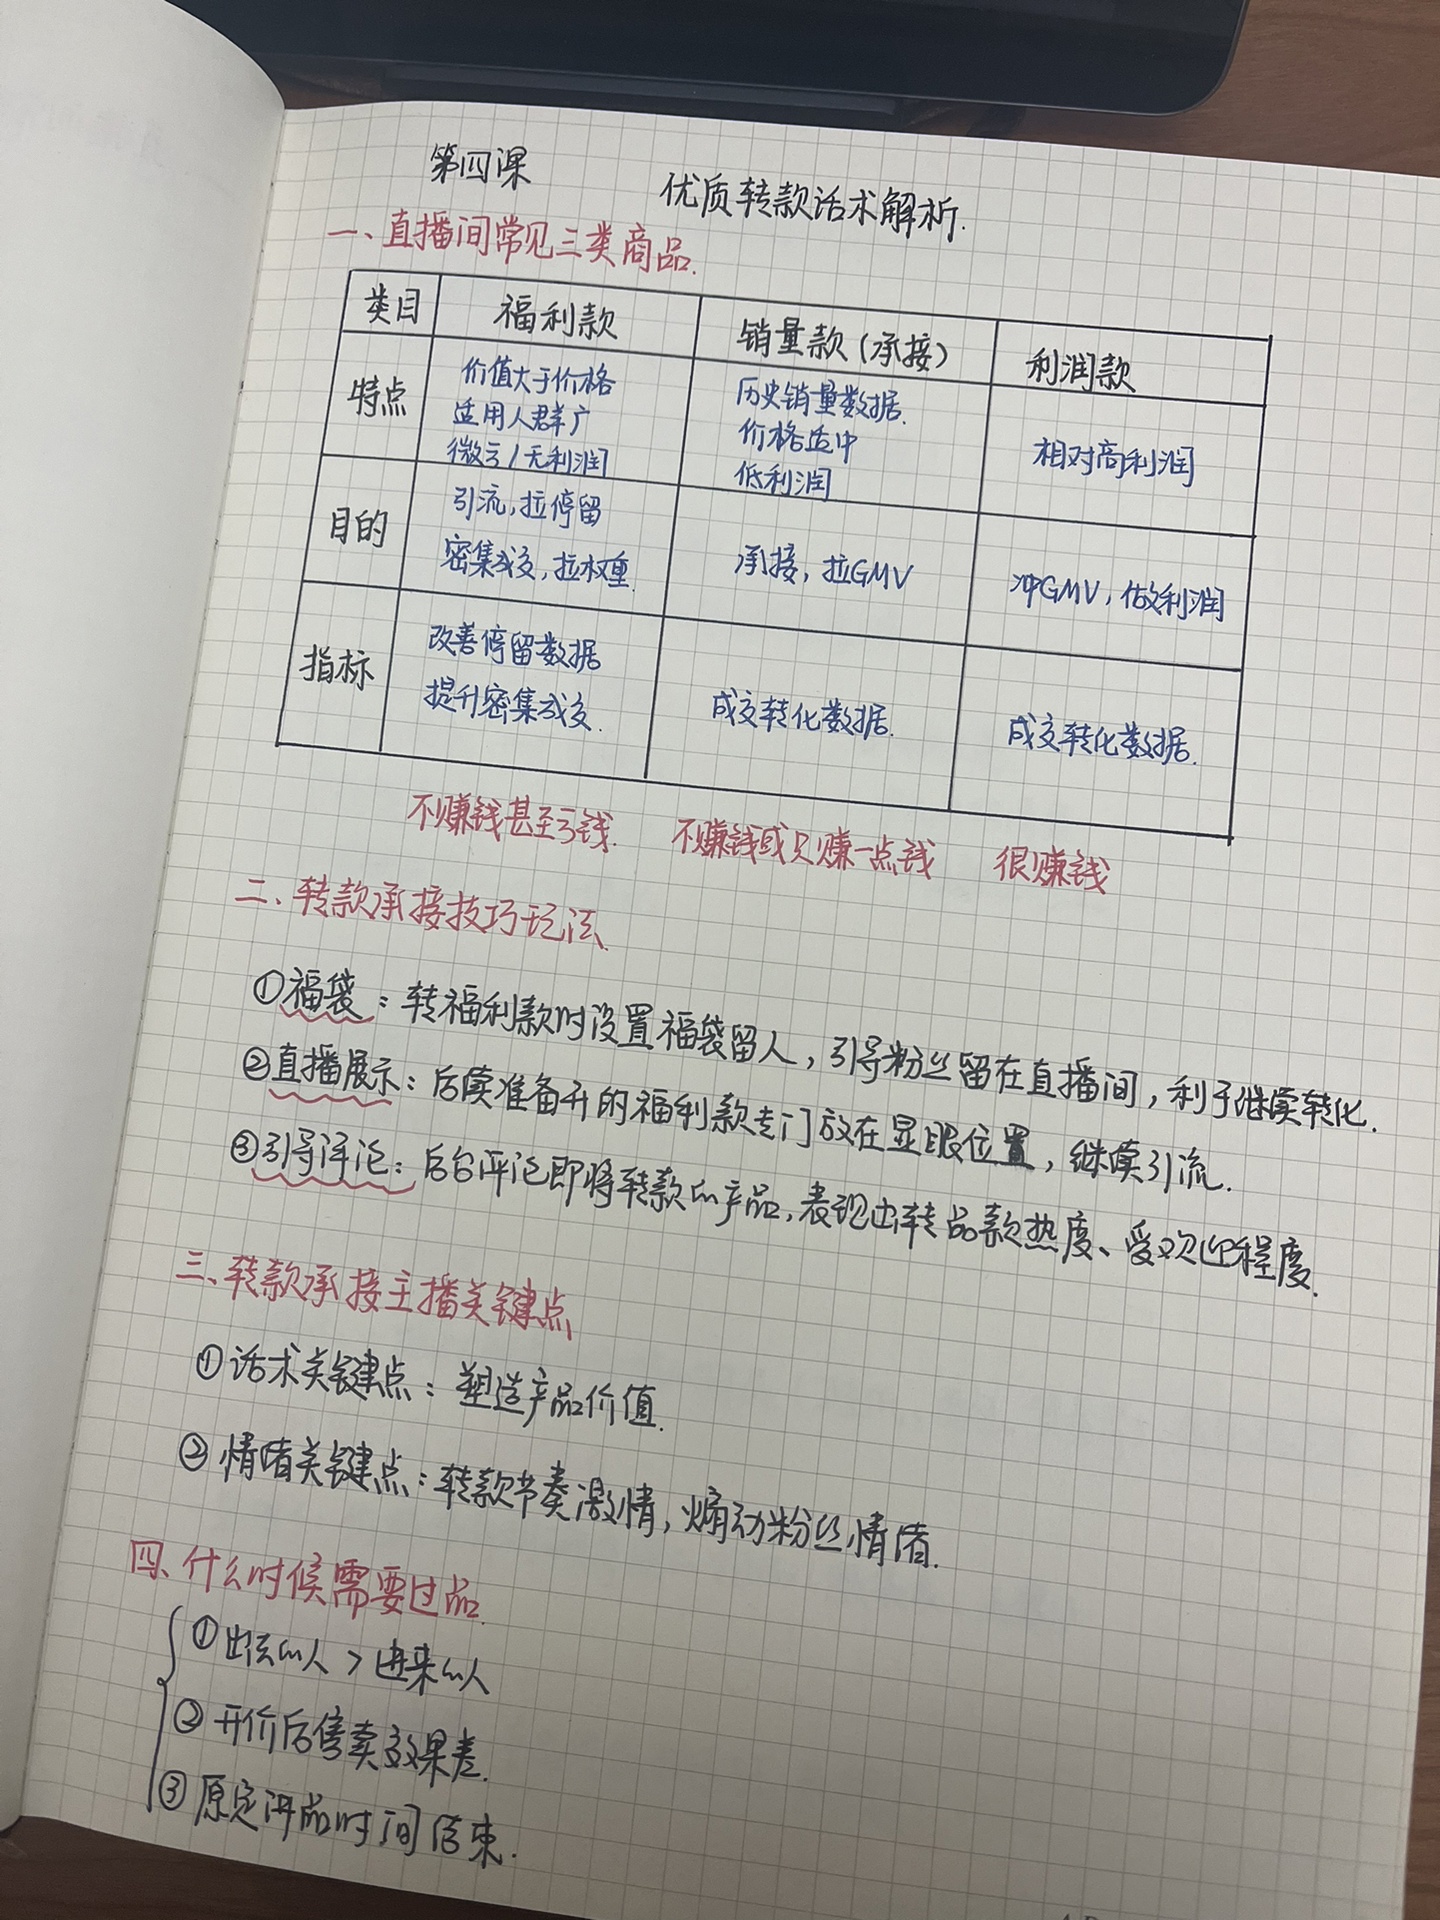 第四课 优质转款话术解析.
一、直播间常见三类商品.
类目 福利款 销量款(承接) 利润款
特点 价值大于价格 历史销量数据. 相对高利润
适用人群广 价格适中
微亏/无利润 低利润
目的 引流,拉停留 承接,拉GMV 冲GMV,做利润
密集成交,拉权重.
指标 改善停留数据 成交转化数据. 成交转化数据.
提升密集成交.
不赚钱甚至亏钱. 不赚钱或只赚一点钱 很赚钱
二、转款承接技巧玩法.
①福袋:转福利款时设置福袋留人,引导粉丝留在直播间,利于继续转化.
②直播展示:后续准备开的福利款专门放在显眼位置,继续引流.
③引导评论:后台评论即将转款的产品,表现出转品款热度、受欢迎程度.
三、转款承接主播关键点
①话术关键点:塑造产品价值.
②情绪关键点:转款节奏激情,煽动粉丝情绪.
四、什么时候需要过品.
①出去的人>进来的人
②开价后售卖效果差.
③原定讲品时间结束.